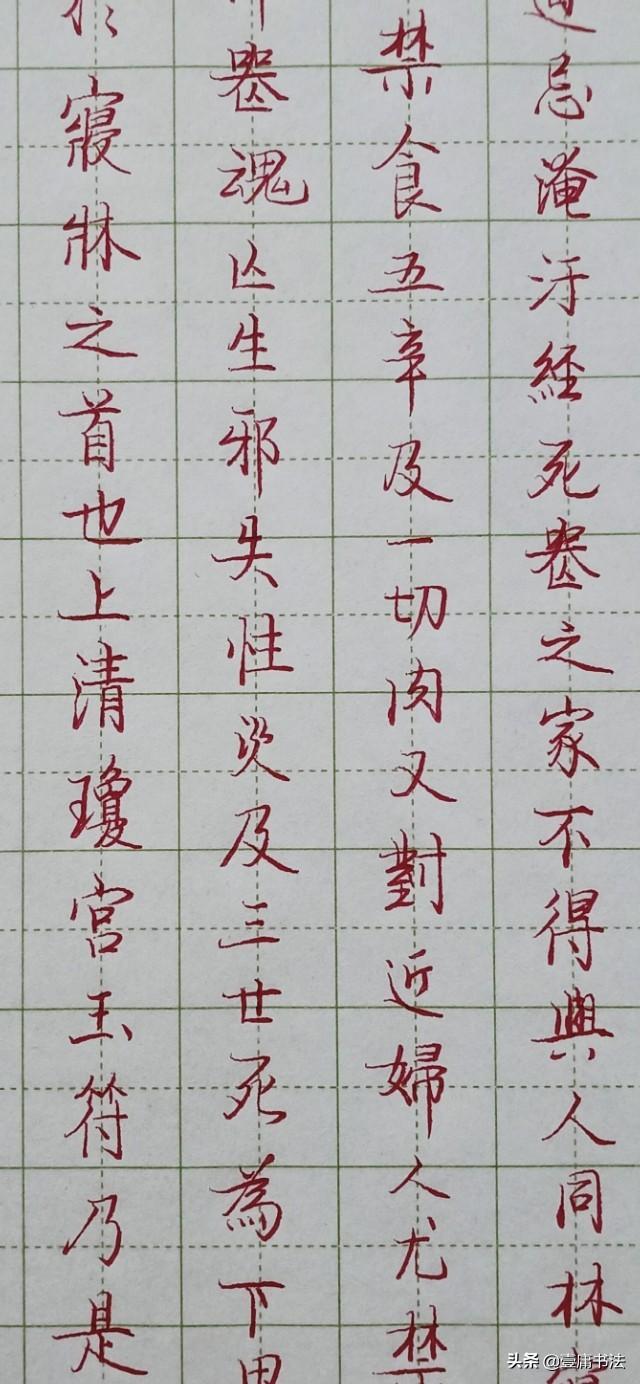 忌淹汙經死喪之家不得與人同林
禁食五辛及一切肉又對近婦人尤禁
喪魂亾生邪失性災及三世死為下
寢牀之首也上清瓊宮玉符乃是
头条 @壹庸书法